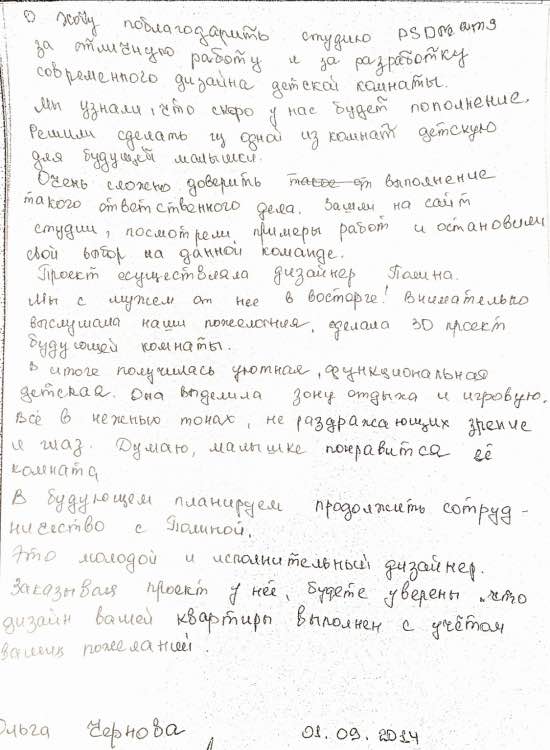 Хочу поблагодарить студию
за отличную работу и за разработку
современного дизайна детской комнаты.
Мы узнали, что скоро у нас будет пополнение.
Решили сделать из одной из комнат детскую
для будущей малышки.
Очень сложно доверить выполнение
такого ответственного дела. Зашли на сайт
студии, посмотрели примеры работ и остановили
свой выбор на данной команде.
Проект осуществляла дизайнер Полина.
Мы с мужем от неё в восторге! Внимательно
выслушала наши пожелания, сделала 3D проект
будующей комнаты.
В итоге получилась уютная, функциональная
детская. Она выделила зону отдыха и игровую.
Всё в нежных тонах, не раздражающих зрение
и глаз. Думаю, малышке понравится её
комната
В будующем планируем продолжить сотруд-
ничество с Полиной.
Это молодой и исполнительный дизайнер.
Заказывая проект у неё, будете уверены, что
дизайн вашей квартиры выполнен с учётом
ваших пожеланий.
Ольга Чернова 01.09.2014